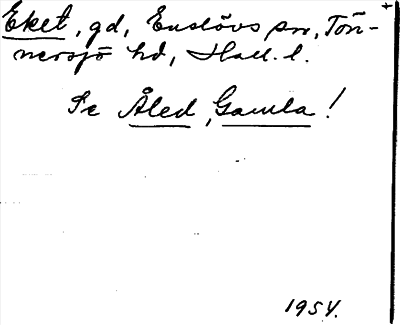 Eket, gd, Enslövs sn, Tön-
nersjö hd, Hall. l.
Se Åled, Gamla!
1954.